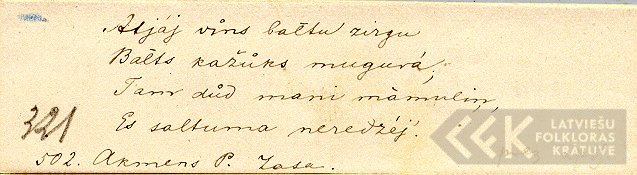 Atjáj víns baltu zirgu
Balts kažúks mugurá,
Tam důd mani mámulin,
Es saltuma neredzéj.
321
502. Akmens P. Zasa.
LATVIEŠU
FOLKLORAS
KRĀTUVE